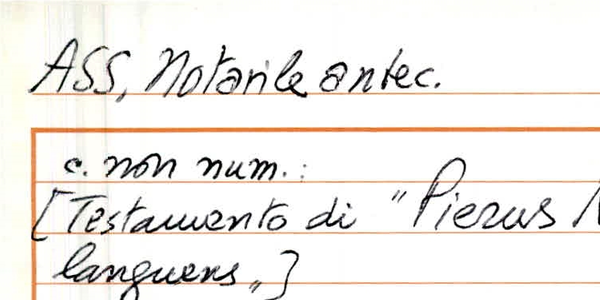 ASS, Notarile antec.
c. non num.:
[Testamento di "Pierus
languens"]